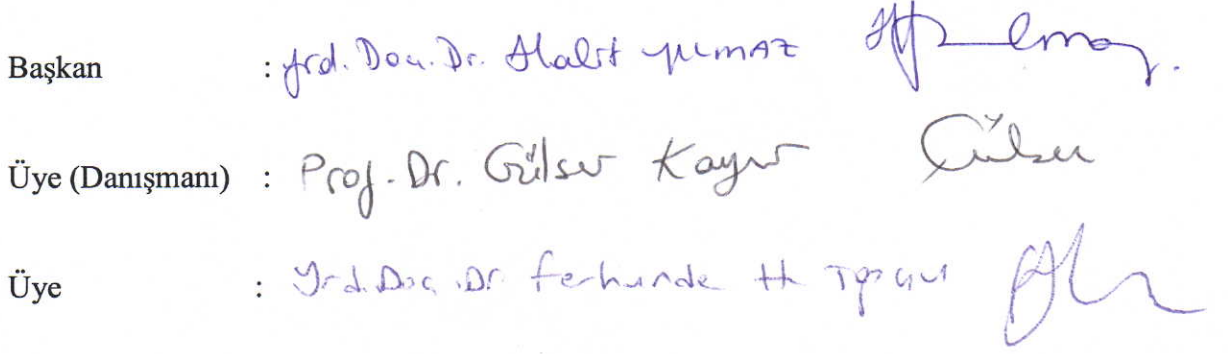 Başkan : Yrd. Doç. Dr. Halit YILMAZ
Üye (Danışmanı) : Prof. Dr. Gülser
Üye : Yrd. Doç. Dr. Ferhunde H